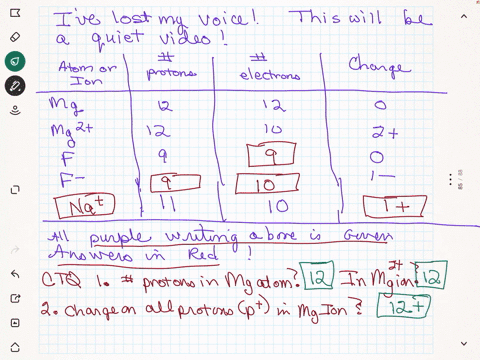 I've lost my voice! This will be
a quiet video!
Atom or Ion # protons # electrons Charge
Mg 12 12 0
Mg2+ 12 10 2+
F 9 9 0
F- 9 10 1-
Na+ 11 10 1+
All purple writing above is Given
Answers in Red!
CTQ 1. # protons in Mg atom? 12 In Mg2+ ion? 12
2. Charge on all protons (p+) in Mg Ion? 12+